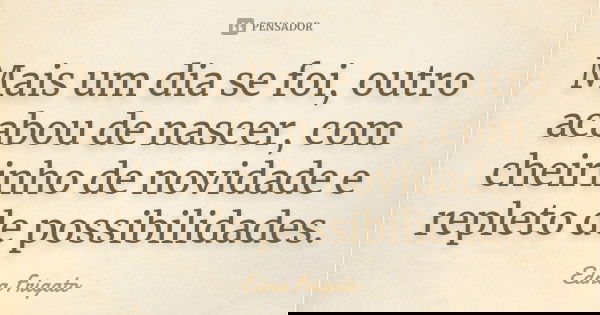 PENSADOR
Mais um dia se foi, outro
acabou de nascer, com
cheirinho de novidade e
repleto de possibilidades.
Edna Frigato